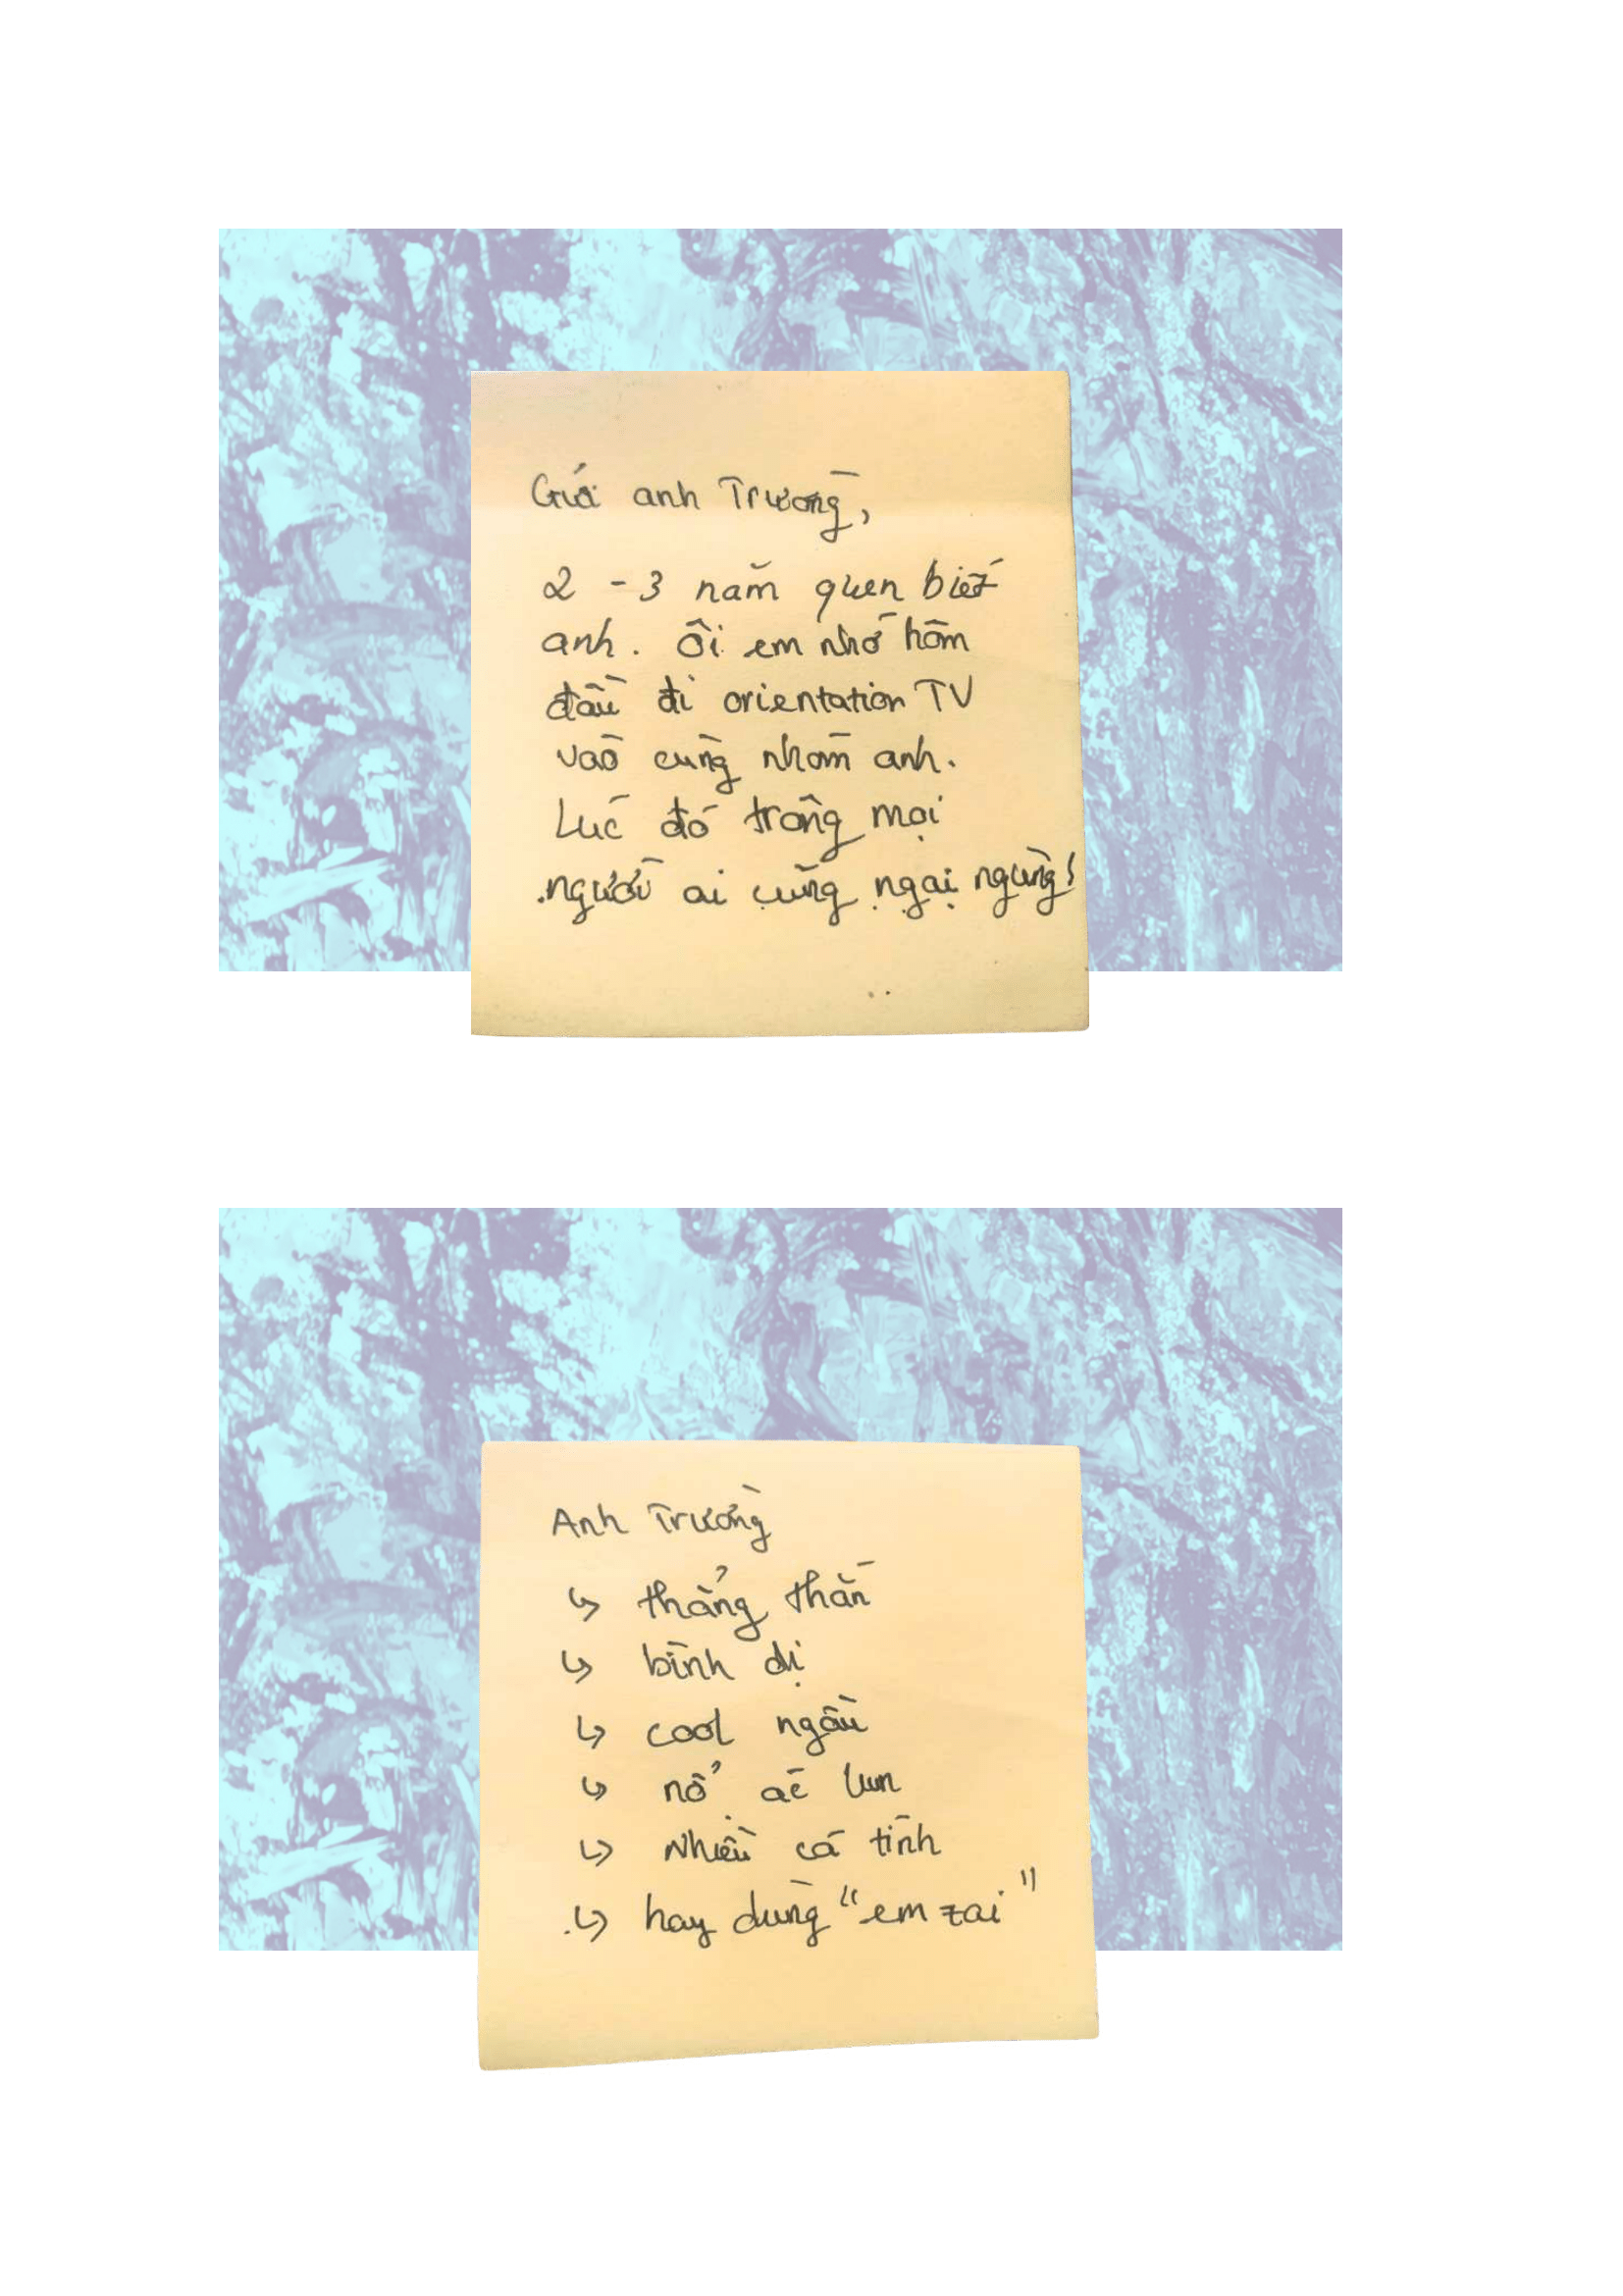 Gửi anh Trường,
2 - 3 năm quen biết
anh. Ôi em nhớ hôm
đầu đi orientation TV
vào cùng nhóm anh.
Lúc đó trông mọi
người ai cũng ngại ngùng!
Anh Trường
↳ thẳng thắn
↳ bình dị
↳ cool ngầu
↳ nổ ác lun
↳ Nhiều cá tính
↳ hay dùng "em zai"